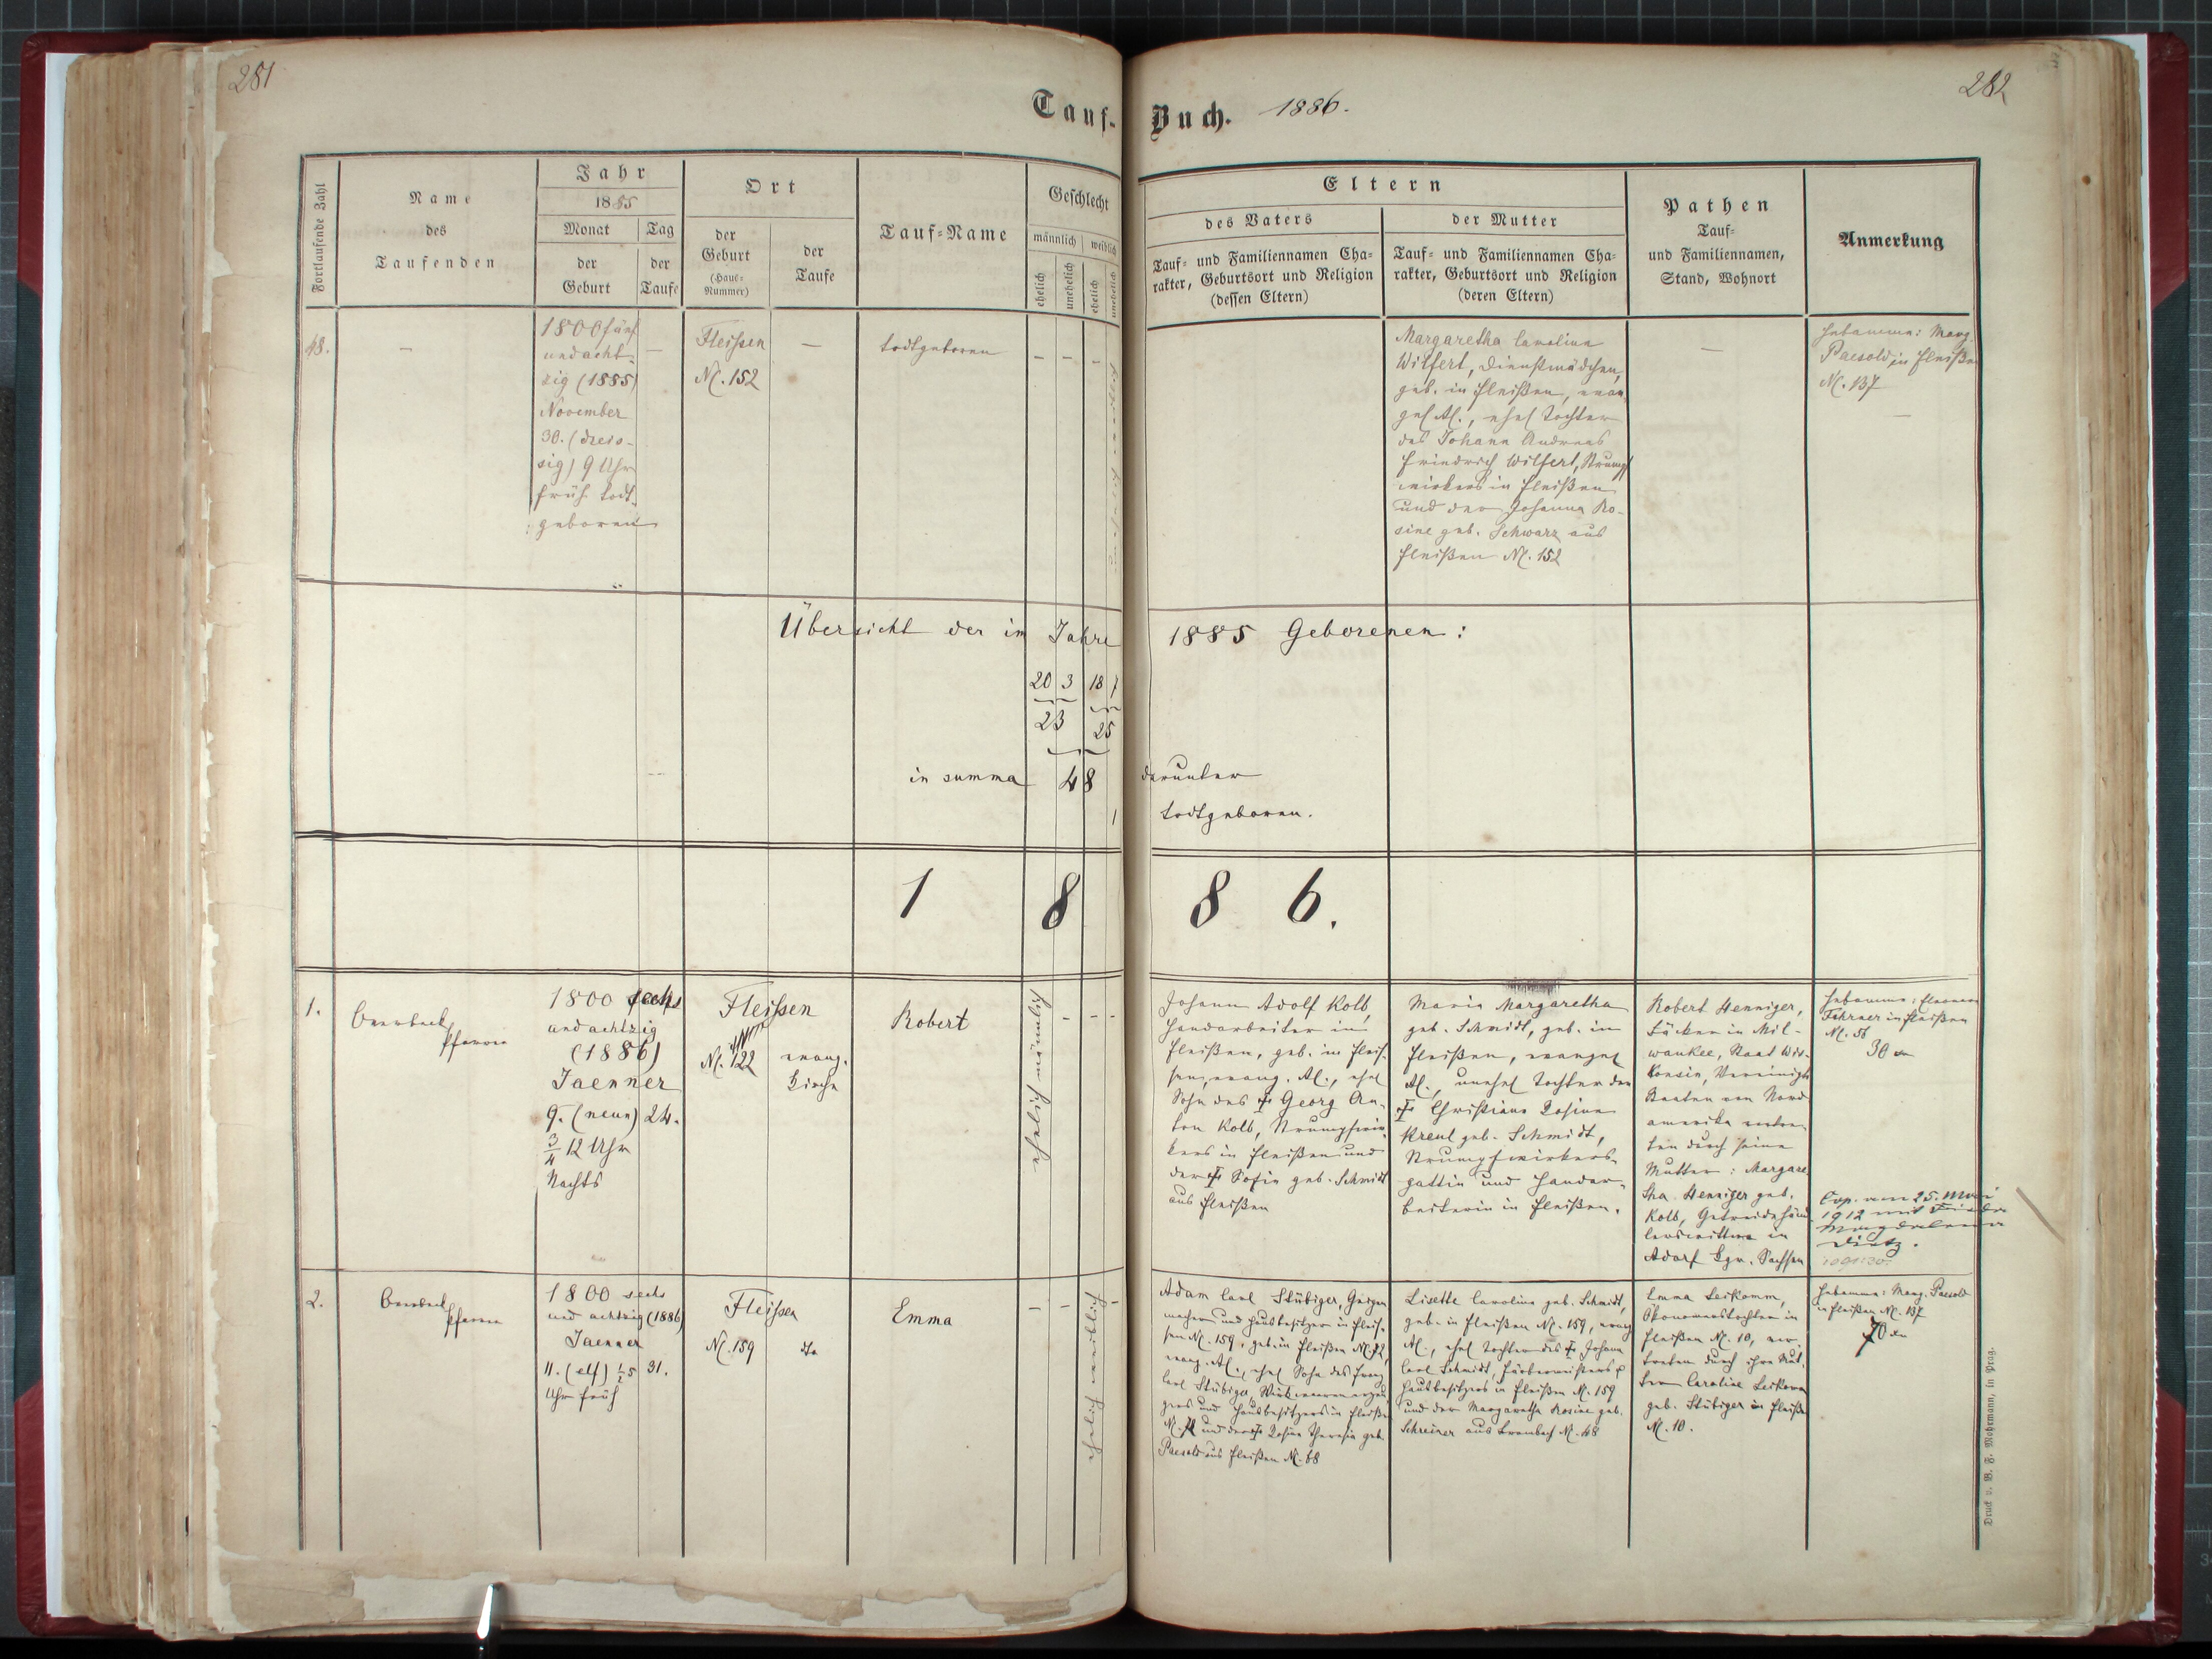 281
282
Tauf-Buch. 1886.
Fortlaufende Zahl
Name
des
Taufenden
Jahr
1885
Monat
der
Geburt
Tag
der
Taufe
Ort
der
Geburt
(Haus-
Nummer)
der
Taufe
Tauf-Name
Geschlecht
männlich
weiblich
ehelich
unehelich
ehelich
unehelich
Eltern
des Vaters
Tauf- und Familiennamen Cha-
rakter, Geburtsort und Religion
(dessen Eltern)
der Mutter
Tauf- und Familiennamen Cha-
rakter, Geburtsort und Religion
(deren Eltern)
Pathen
Tauf-
und Familiennamen,
Stand, Wohnort
Anmerkung
48.
—
1800 fünf
und acht-
zig (1885)
November
30. (dreis-
sig) 9 Uhr
früh todt-
geboren
—
Fleissen
N. 152
—
todtgeboren
– – –
Margaretha Caroline
Wilfert, Dienstmädchen,
geb. in Fleißen, evan-
gel. AC., ehel Tochter
des Johann Andreas
Friedrich Wilfert, Strumpf
wirkers in Fleißen
und der Johanna Ro-
sine geb. Schwarz aus
Fleißen N. 152
—
Hebamme: Marg.
Paesold in Fleißen
N. 137
Übersicht der im Jahre 1885 Geborenen:
20 3 18 7
23 25
in summa 48 darunter
1 todtgeboren.
1886.
1.
Overbeck
Pfarrer
1800 sechs
und achtzig
(1886)
Jaenner
9. (neun) 24.
3/4 12 Uhr
Nachts
Fleissen
N. 122
evang.
Kirche
Robert
ehelich männlich
– – –
Johann Adolf Kolb,
Handarbeiter in
Fleißen, geb. in Fleis-
sen, evang. AC., ehel
Sohn des † Georg An-
ton Kolb, Strumpfwir-
kers in Fleißen und
der † Sofie geb. Schmidt
aus Fleißen
Maria Margaretha
geb. Schmidt, geb. in
Fleißen, evangel
AC., unehel Tochter der
† Christiane Rosine
Kreul geb. Schmidt,
Strumpfwirkers-
gattin und Handar-
beiterin in Fleißen.
Robert Henniger,
Bäcker in Mil-
waukee, Staat Wis-
konsin, Vereinigte
Staaten von Nord
amerika vertre-
ten durch seine
Mutter: Margare
tha Henniger geb.
Kolb, Getreidehänd
lerswittwe in
Adorf Kgr. Sachsen
Hebamme: Eleonore
Fahrner in Fleißen
N. 56
30
Cop. am 25. Mai
1912 mit Frieda
Magdalena
Dietz.
2.
Overbeck
Pfarrer
1800 sechs
und achtzig (1886)
Jaenner
11. (elf) 1/2 5 31.
Uhr früh
Fleissen
N. 159
dto
Emma
– – –
ehelich weiblich
Adam Carl Stübiger, Geigen
macher und Hausbesitzer in Fleis-
sen N. 159, geb. in Fleißen N. 72,
evang. AC., ehel Sohn des Franz
Carl Stübiger, Wirkwarenerzeu
gers und Hausbesitzers in Fleißen
N. 72 und der † Rosine Theresia geb.
Paesold aus Fleißen N. 68
Lisette Caroline geb. Schmidt,
geb. in Fleißen N. 159, evang
AC., ehel Tochter des † Johann
Carl Schmidt, Färbermeisters &
Hausbesitzers in Fleißen N. 159
und der Margaretha Rosine geb.
Schreiner aus Brambach N. 48
Emma Leikomm,
Ökonomenstochter in
Fleißen N. 10, ver-
treten durch ihre Mut-
ter Caroline Leikomm
geb. Stübiger in Fleißen
N. 10.
Hebamme: Marg. Paesold
in Fleißen N. 137
70
Druck v. B. F. Mohrmann, in Prag.